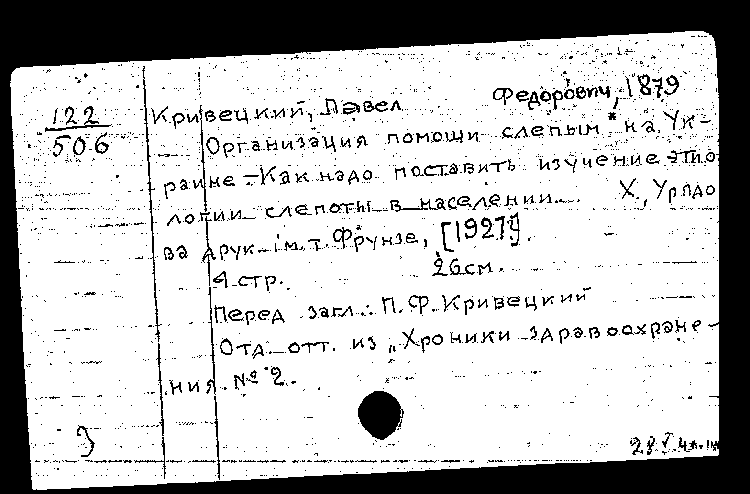 122
506
Кривецкий, Павел Федорович, 1879
Организация помощи слепым * на Ук-
раине.-Как надо поставить изучение этио
логии слепоты в населении. Х., Урядо
ва друк. ім. т. Фрунзе, [1927].
4 стр. 26см.
Перед загл.: П. Ф. Кривецкий
Отд. отт. из „Хроники здравоохране-
ния № 2.